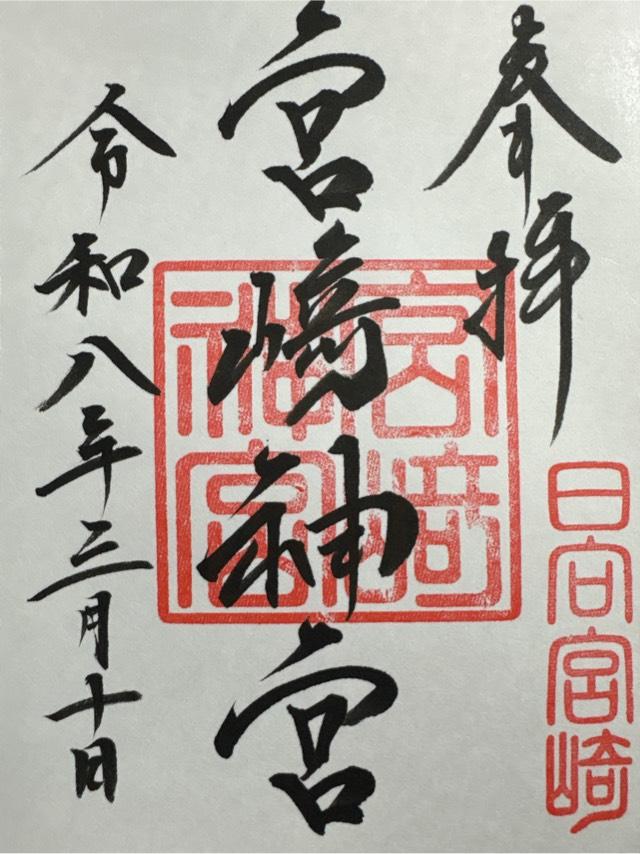 奉拝
日向宮崎
宮﨑神宮
宮﨑神宮
令和八年三月十日